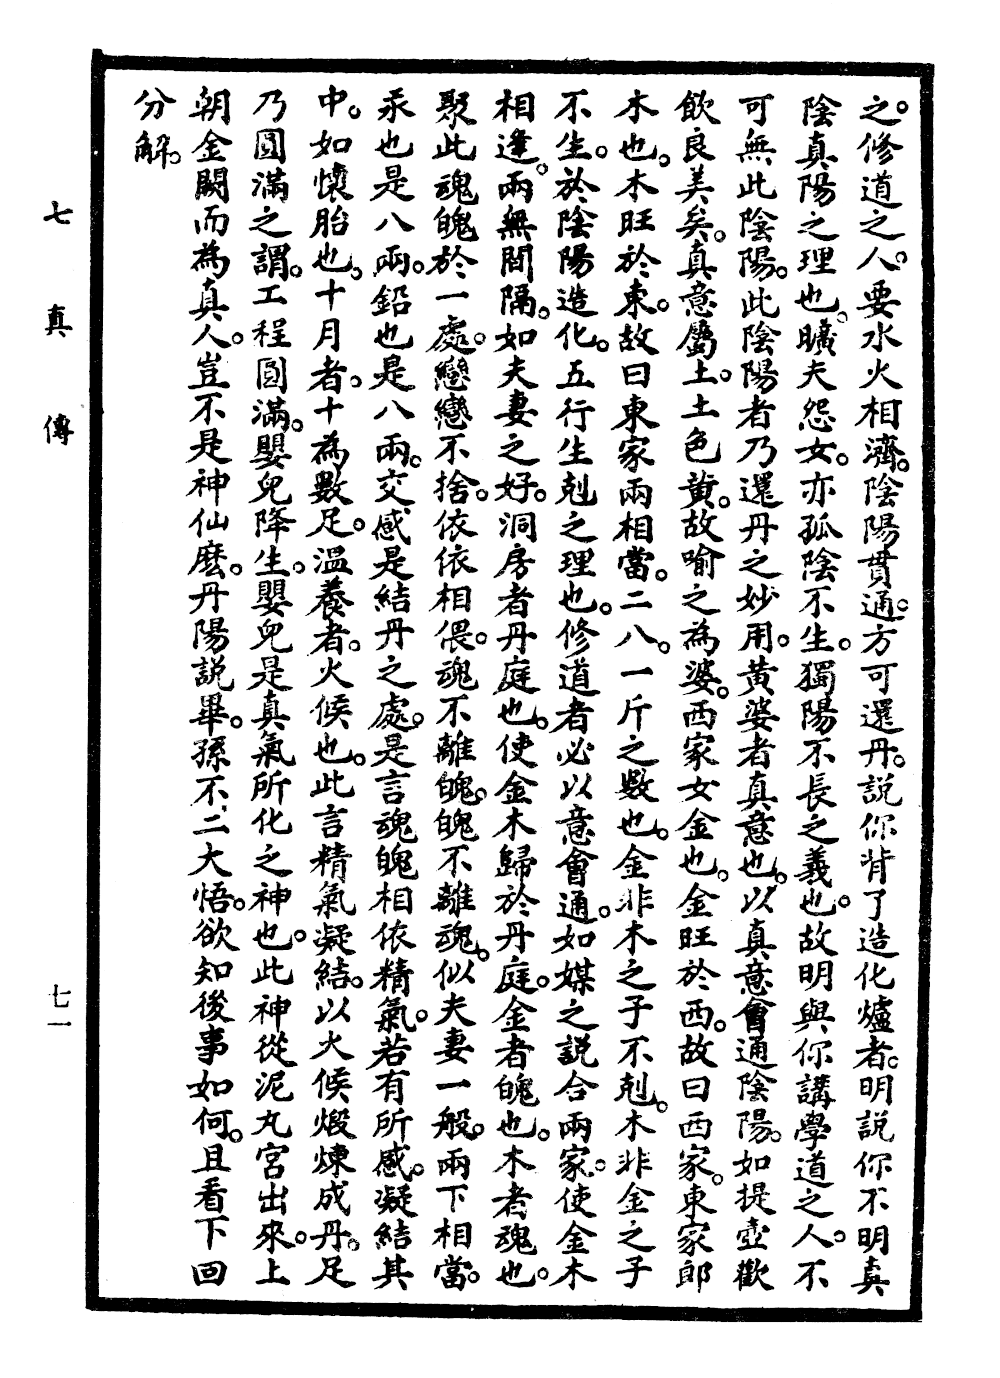 之。修道之人。要水火相濟。陰陽貫通。方可還丹。說你背了造化爐者。明說你不明真
陰真陽之理也。曠夫怨女。亦孤陰不生。獨陽不長之義也。故明與你講學道之人。不
可無此陰陽。此陰陽者乃還丹之妙用。黃婆者真意也。以真意會通陰陽。如提壺歡
飲良美矣。真意屬土。土色黃。故喻之為婆。西家女金也。金旺於西。故曰西家。東家郎
木也。木旺於東。故曰東家兩相當。二八。一斤之數也。金非木之子不剋。木非金之子
不生。於陰陽造化。五行生剋之理也。修道者必以意會通。如媒之說合兩家。使金木
相逢。兩無間隔。如夫妻之好。洞房者丹庭也。使金木歸於丹庭。金者魄也。木者魂也。
聚此魂魄於一處。戀戀不捨。依依相偎。魂不離魄。魄不離魂。似夫妻一般。兩下相當。
汞也是八兩。鉛也是八兩。交感是結丹之處。是言魂魄相依精氣。若有所感。凝結其
中。如懷胎也。十月者。十為數足。溫養者。火候也。此言精氣凝結。以火候煅煉成丹。足
乃圓滿之謂。工程圓滿。嬰兒降生。嬰兒是真氣所化之神也。此神從泥丸宮出來。上
朝金闕而為真人。豈不是神仙麽。丹陽說畢。孫不二大悟。欲知後事如何。且看下回
分解。
七真傳
七一